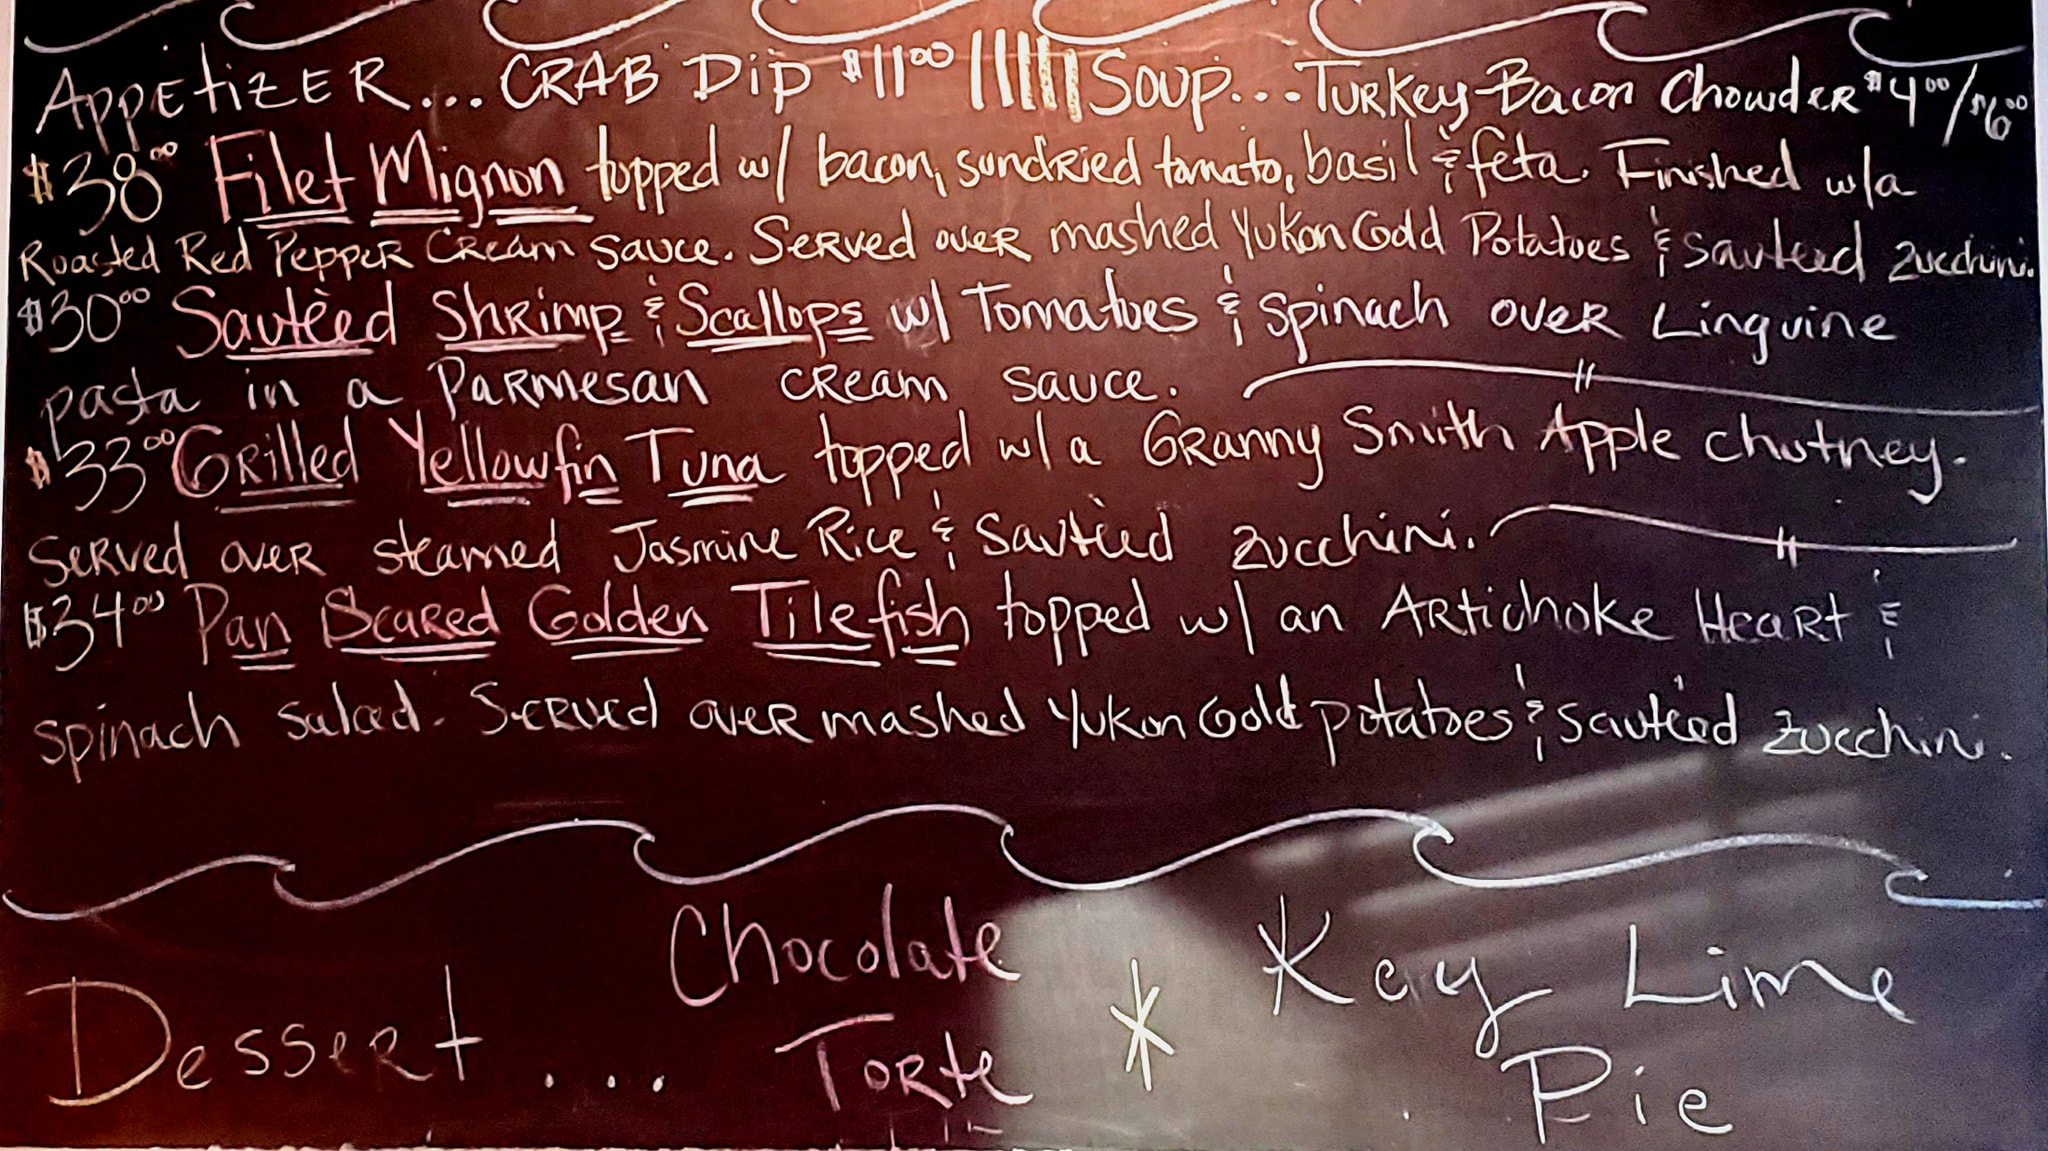 Appetizer... Crab Dip $11.00 Soup... Turkey-Bacon Chowder $4.00/$6.00
$38.00 Filet Mignon topped w/ bacon, sundried tomato, basil & feta. Finished w/a
Roasted Red Pepper Cream Sauce. Served over mashed Yukon Gold Potatoes & Sautéed Zucchini.
$30.00 Sautéed Shrimp & Scallops w/ Tomatoes & Spinach over Linguine
pasta in a Parmesan cream sauce.
$33.00 Grilled Yellowfin Tuna topped w/a Granny Smith Apple chutney.
Served over steamed Jasmine Rice & Sautéed zucchini.
$34.00 Pan Seared Golden Tilefish topped w/ an Artichoke Heart &
spinach salad. Served over mashed Yukon Gold potatoes & Sautéed zucchini.
Dessert.... Chocolate Torte * Key Lime Pie